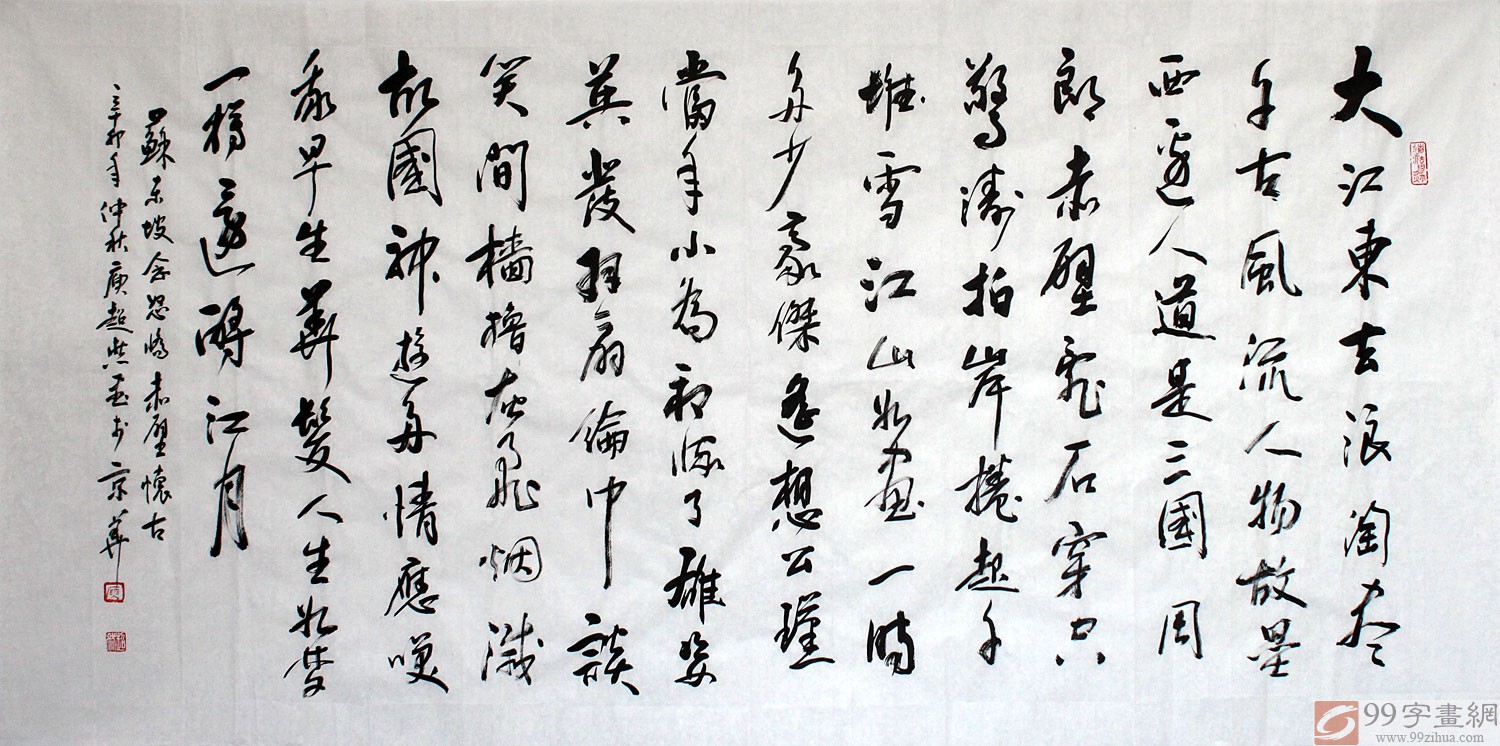 大江東去浪淘尽
千古風流人物故壘
西邊人道是三國周
郎赤壁亂石穿空
驚濤拍岸捲起千
堆雪江山如画一時
多少豪傑遙想公瑾
當年小喬初嫁了雄姿
英發羽扇綸巾談
笑間檣櫓灰飛烟滅
故國神遊多情應笑
我早生華髮人生如梦
一樽還酹江月
蘇東坡念奴嬌赤壁懷古
辛卯年仲秋庚超然於京華
99字畫網
www.99zihua.com